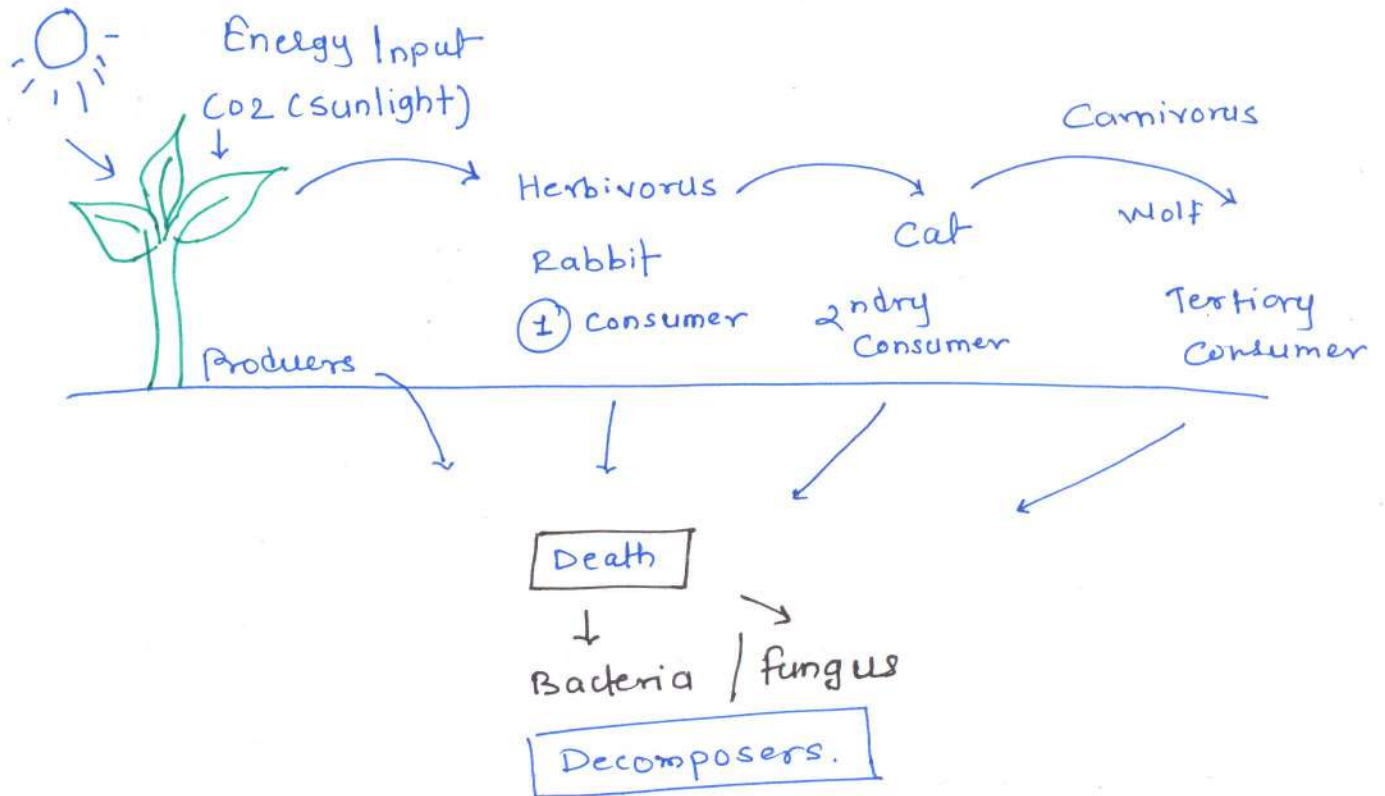 Energy Input
CO2 (sunlight)
Carnivorus
Herbivorus
Cat
Wolf
Rabbit
1 Consumer
2ndry
Consumer
Tertiary
Consumer
Produers
Death
Bacteria / fungus
Decomposers.